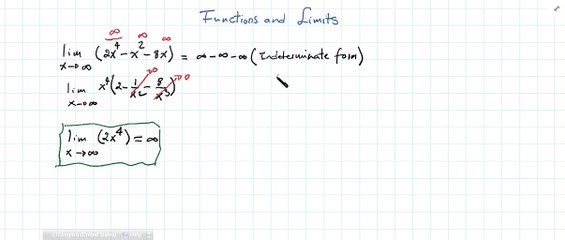 Functions and Limits
∞ ∞ ∞
lim (2x⁴ - x² - 8x) = ∞ - ∞ - ∞ (Indeterminate form)
x→∞
lim x⁴(2 - 1/x² - 8/x³) →0 →0
x→∞
lim (2x⁴) = ∞
x→∞